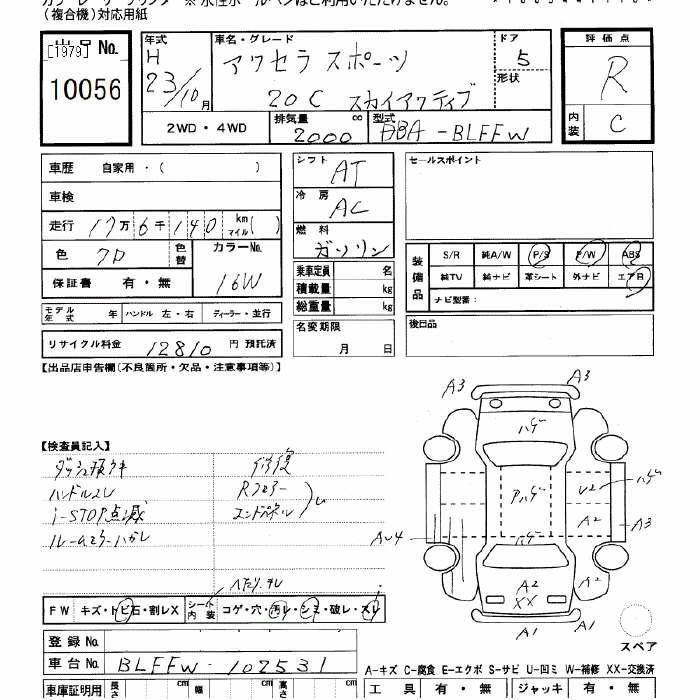 (複合機)対応用紙
出品 No.
[1979]
10056
年式
H
23/10月
車名・グレード
アクセラ スポーツ
20C スカイアクティブ
ドア
5
形状
評価点
R
内装
C
2WD・4WD
排気量
2000 cc
型式
DBA-BLEFW
車歴 自家用・( )
車検
走行 17万6千140 km マイル( )
色 クロ 色替
カラーNo.
16W
保証書 有・無
モデル年式 年 ハンドル 左・右 ディーラー・並行
リサイクル料金 12810 円 預託済
シフト
AT
冷房
AC
燃料
ガソリン
乗車定員 名
積載量 kg
総重量 kg
名変期限
月 日
セールスポイント
装備品
S/R 純A/W P/S P/W ABS
純TV 純ナビ 革シート 外ナビ エアB
ナビ型番:
後日品
【出品店申告欄(不良箇所・欠品・注意事項等)】
【検査員記入】
ハンドルスレ
i-STOP点滅
ルームミラーハガレ
修復
Rフロアー
エンドパネル
A3
A3
ハゲ
Pハゲ
ハゲ
U2
ハゲ
A2
A3
AU4
ハゲ
A2
XX
A2
A1
A1
スペア
FW キズ・トビ石・割レX シート内装 コゲ・穴・汚レ・シミ・破レ・スレ
登録 No.
車台 No. BLEFW-102531
A-キズ C-腐食 E-エクボ S-サビ U-凹ミ W-補修 XX-交換済
車庫証明用 長さ cm 幅 cm 高さ cm
工具 有・無 ジャッキ 有・無